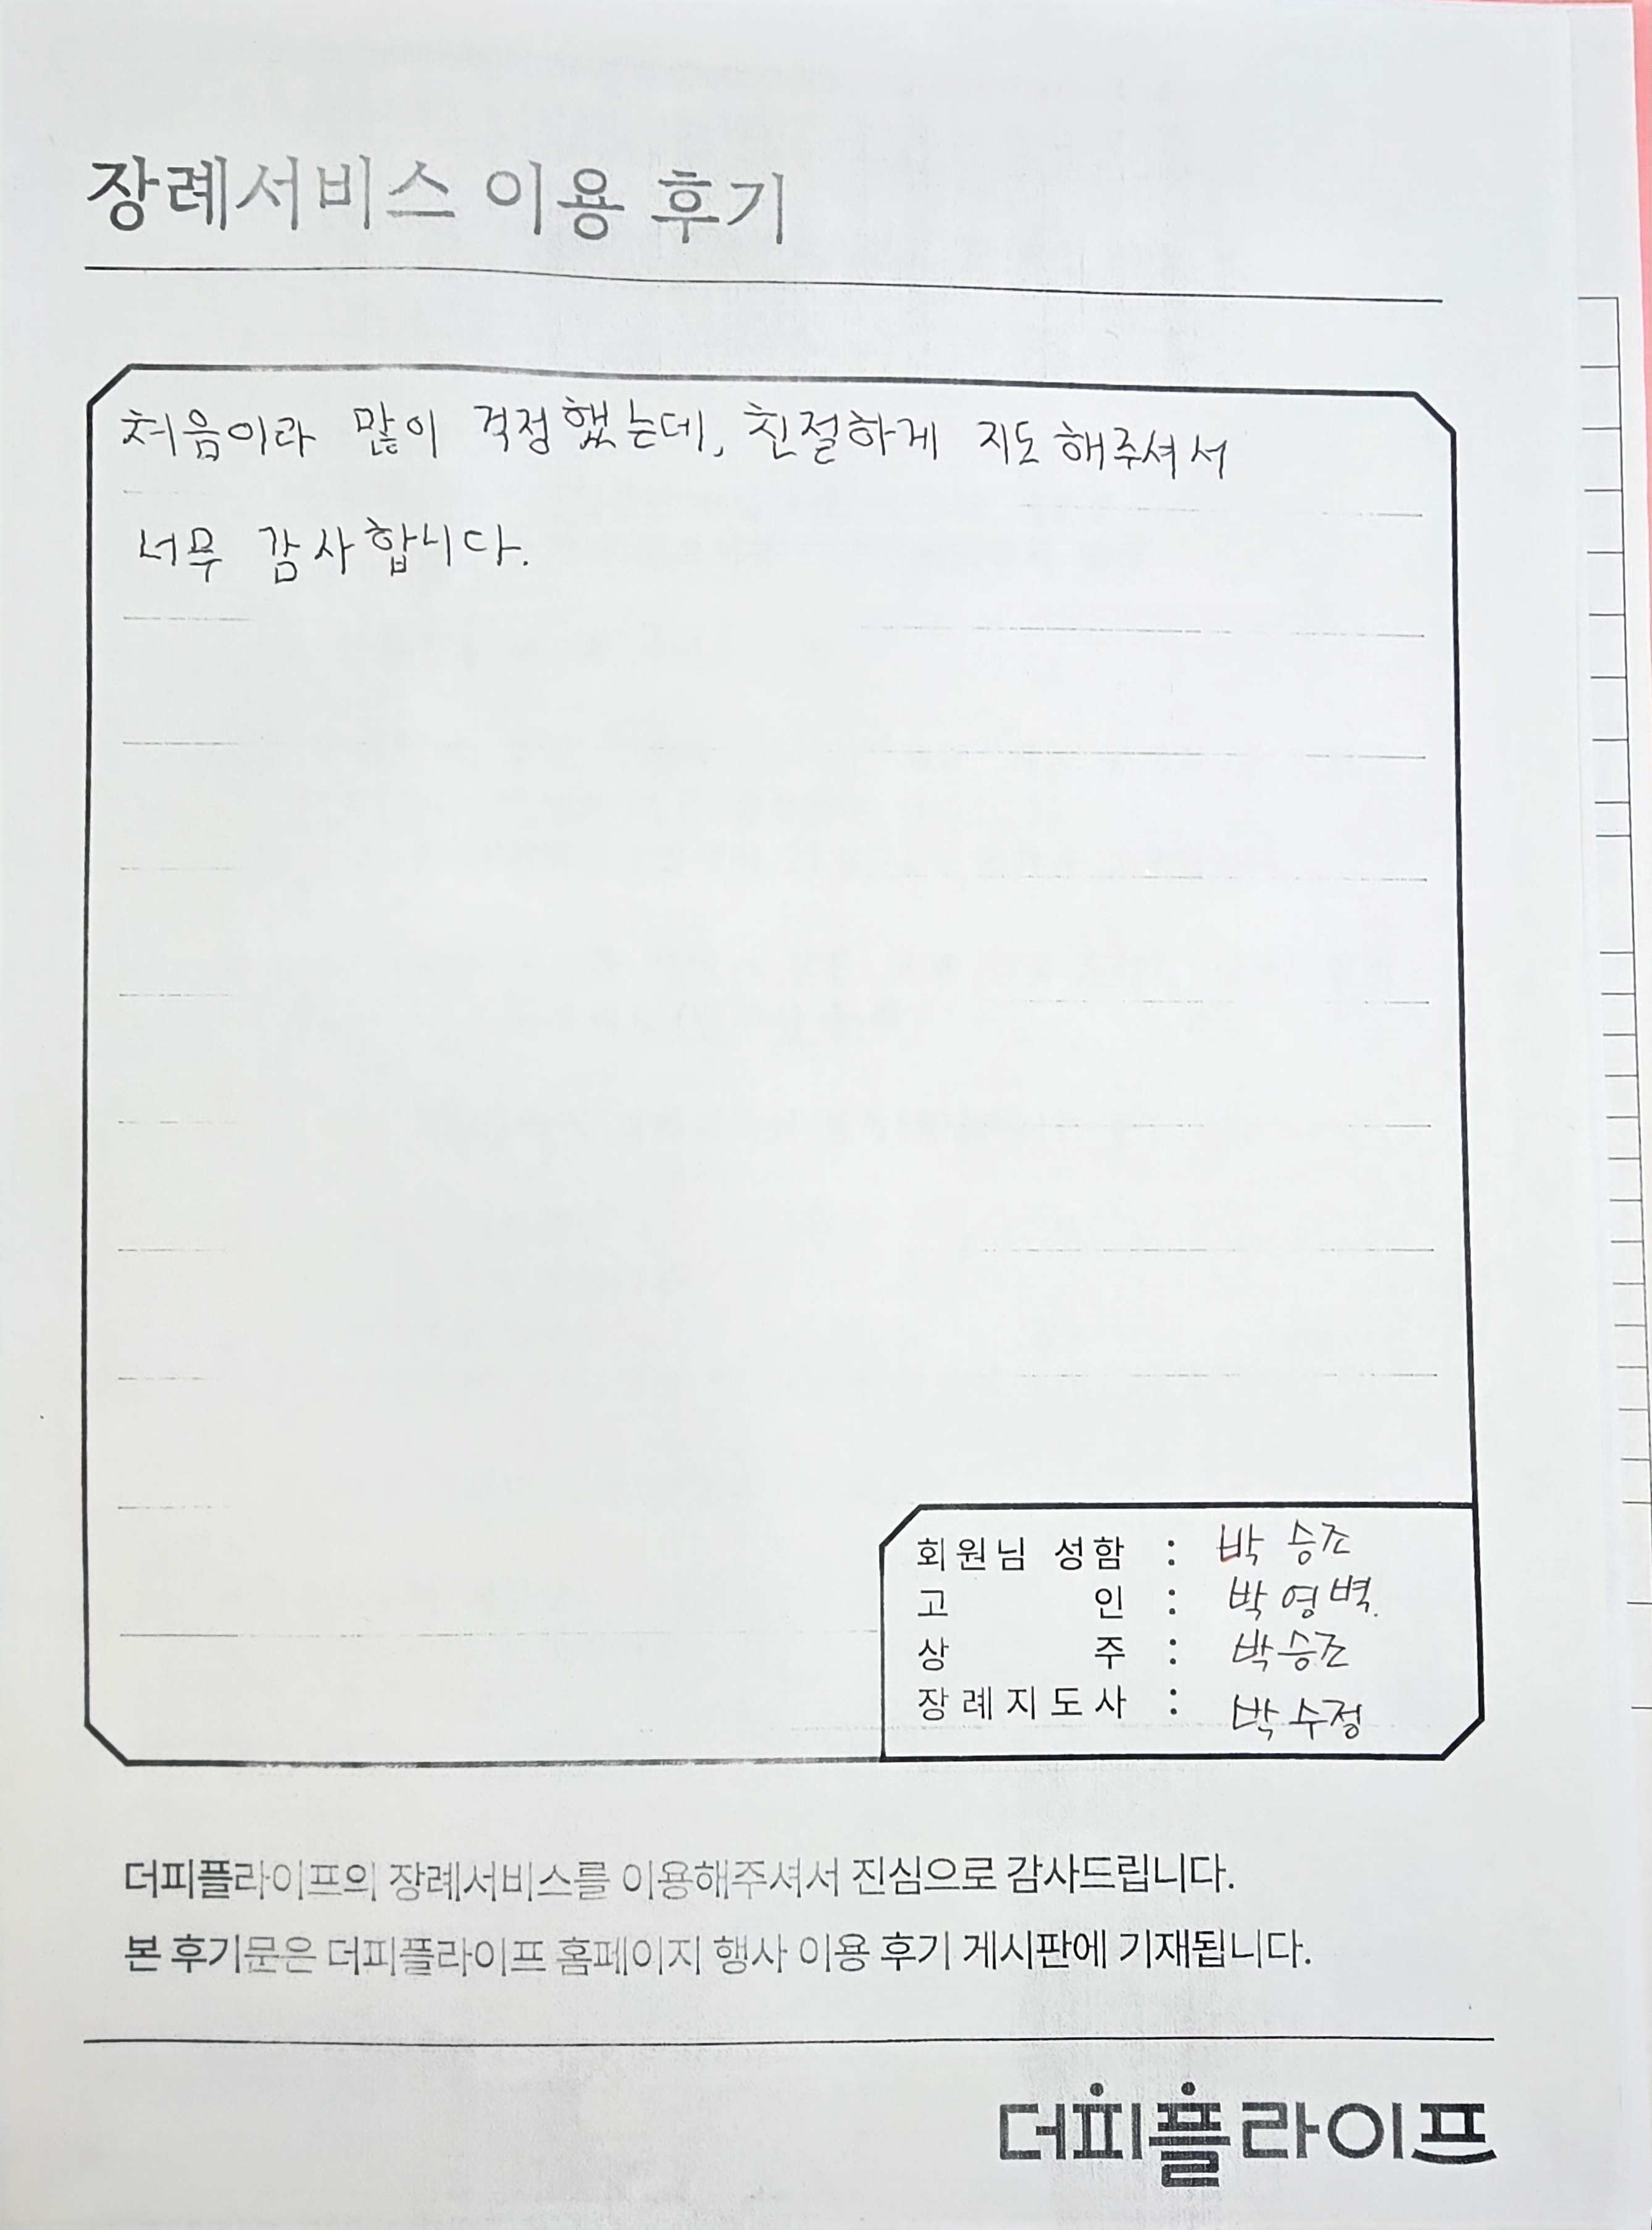 장례서비스 이용 후기
처음이라 많이 걱정했는데, 친절하게 지도해주셔서
너무 감사합니다.
회원님 성함 : 박승조
고 인 : 박영벽.
상 주 : 박승조
장례지도사 : 박수정
더피플라이프의 장례서비스를 이용해주셔서 진심으로 감사드립니다.
본 후기문은 더피플라이프 홈페이지 행사 이용 후기 게시판에 기재됩니다.
더피플라이프